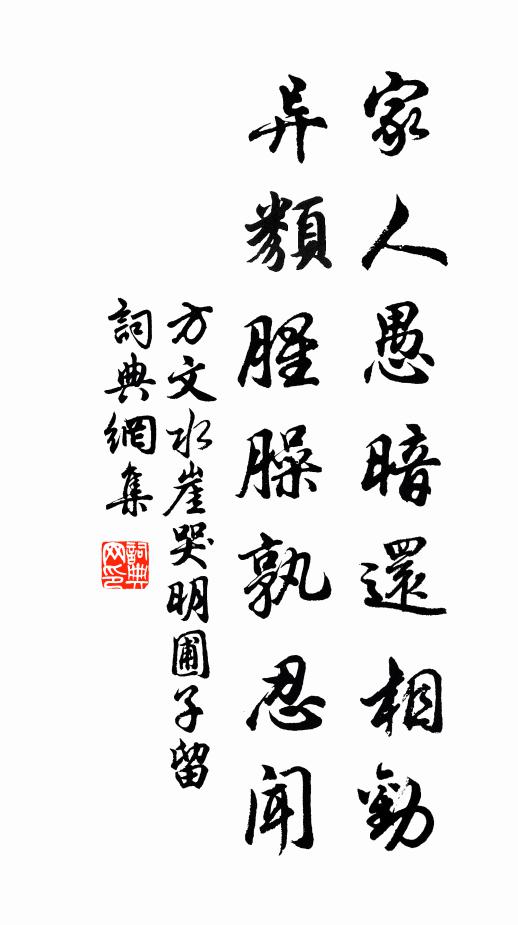 家人愚暗還相勸
异類腥臊孰忍聞
方文水崖哭明圃子留
詞典網集
詞典網印